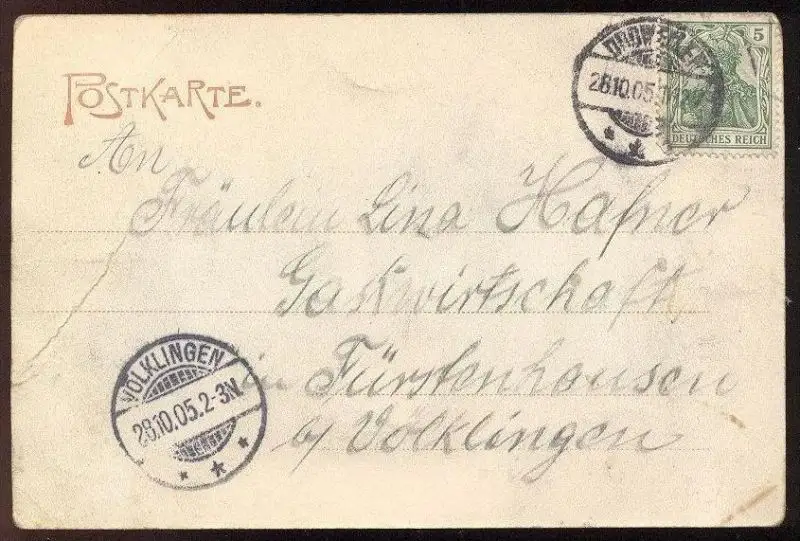 POSTKARTE.
5
DEUTSCHES REICH
28.10.05.
An
Fräulein Lina Hafner
Gastwirtschaft
in Fürstenhausen
b/ Völklingen
VÖLKLINGEN
28.10.05.2-3N.